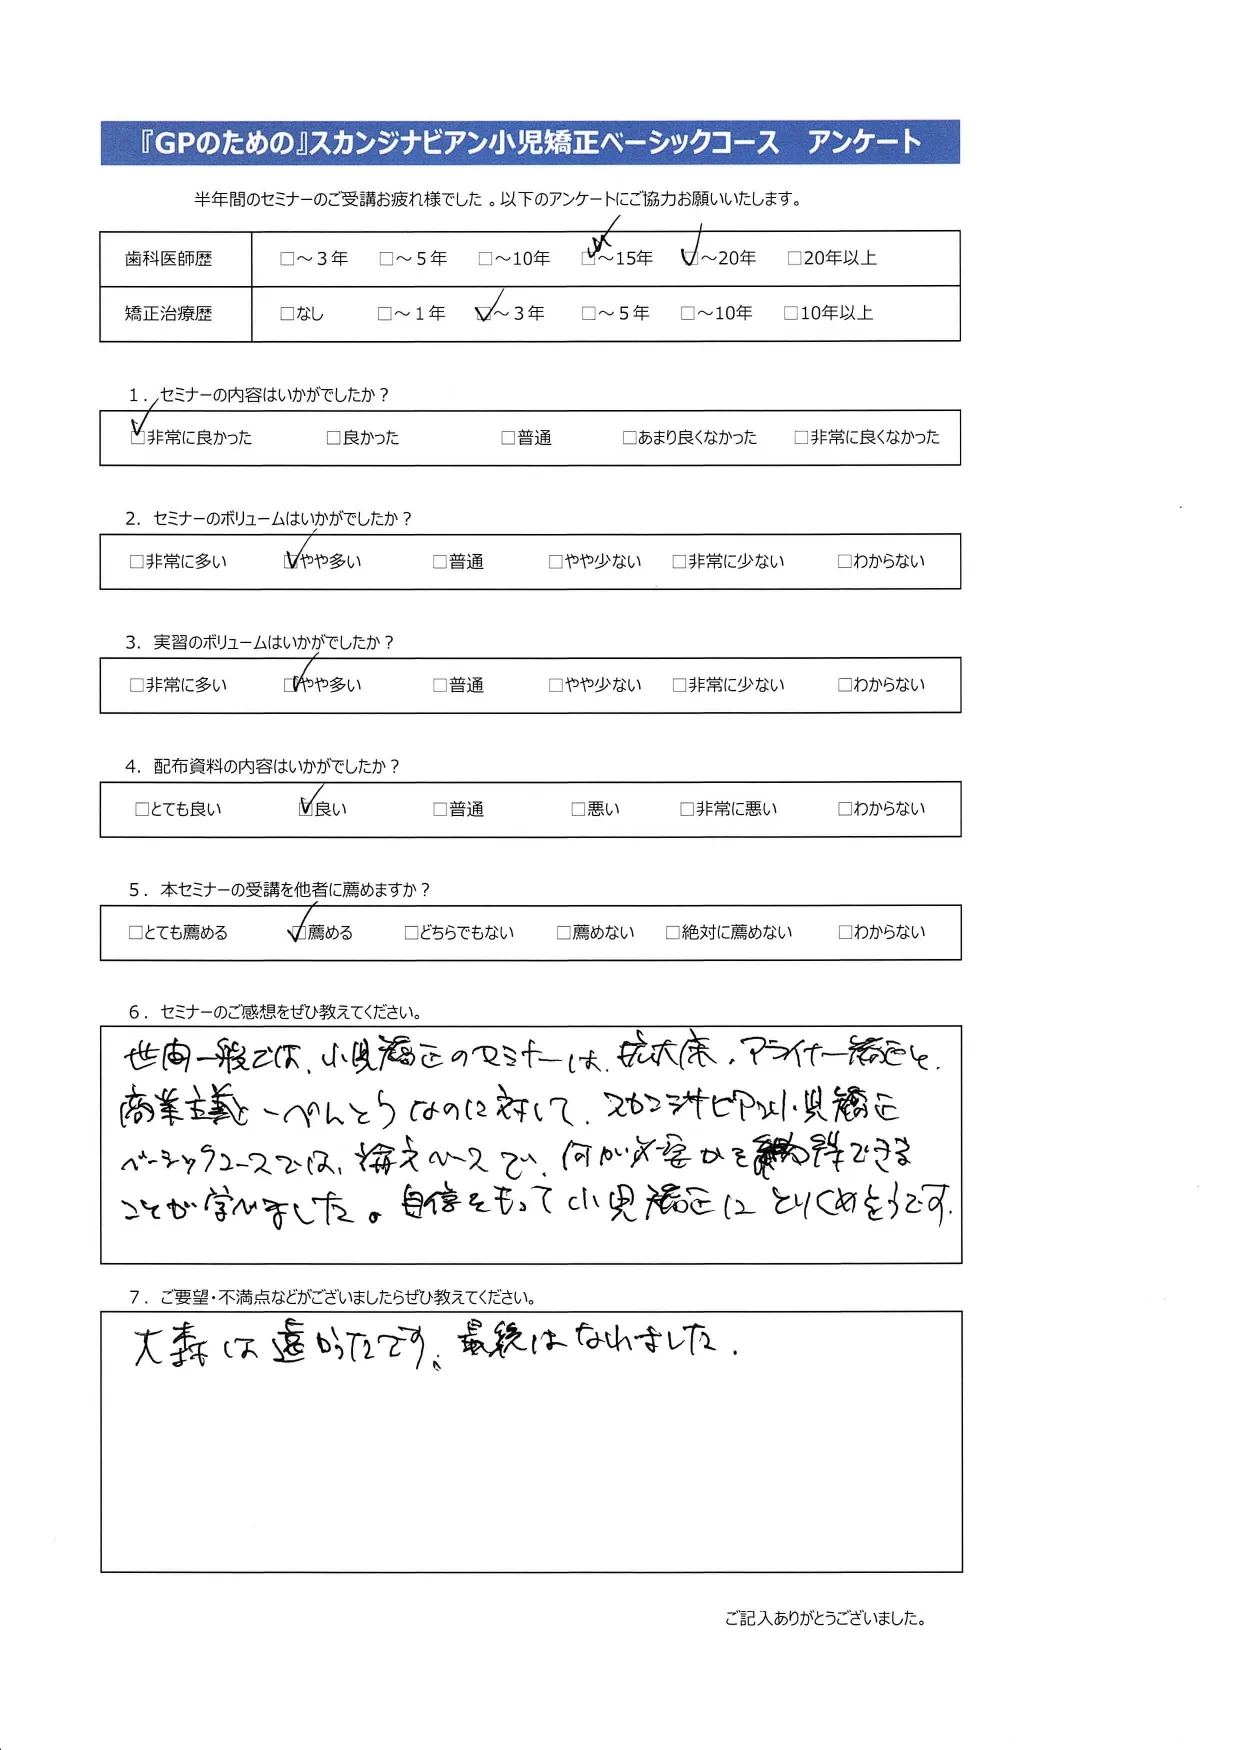 『GPのための』スカンジナビアン小児矯正ベーシックコース　アンケート
半年間のセミナーのご受講お疲れ様でした。以下のアンケートにご協力お願いいたします。
歯科医師歴 □～３年 □～５年 □～10年 □～15年 □～20年 □20年以上
矯正治療歴 □なし □～１年 □～３年 □～５年 □～10年 □10年以上
１．セミナーの内容はいかがでしたか？
□非常に良かった □良かった □普通 □あまり良くなかった □非常に良くなかった
2．セミナーのボリュームはいかがでしたか？
□非常に多い □やや多い □普通 □やや少ない □非常に少ない □わからない
3．実習のボリュームはいかがでしたか？
□非常に多い □やや多い □普通 □やや少ない □非常に少ない □わからない
4．配布資料の内容はいかがでしたか？
□とても良い □良い □普通 □悪い □非常に悪い □わからない
５．本セミナーの受講を他者に薦めますか？
□とても薦める □薦める □どちらでもない □薦めない □絶対に薦めない □わからない
６．セミナーのご感想をぜひ教えてください。
世間一般では、小児矯正のセミナーは、拡大床、アライナー矯正と、
商業主義といっぺんとうなのに対して、スカンジナビアン小児矯正
ベーシックコースでは、論文ベースで、何が必要かを納得できる
ことが学べました。自信をもって小児矯正にとりくめそうです。
７．ご要望・不満点などがございましたらぜひ教えてください。
大森は遠かったです。最後はなれました。
ご記入ありがとうございました。